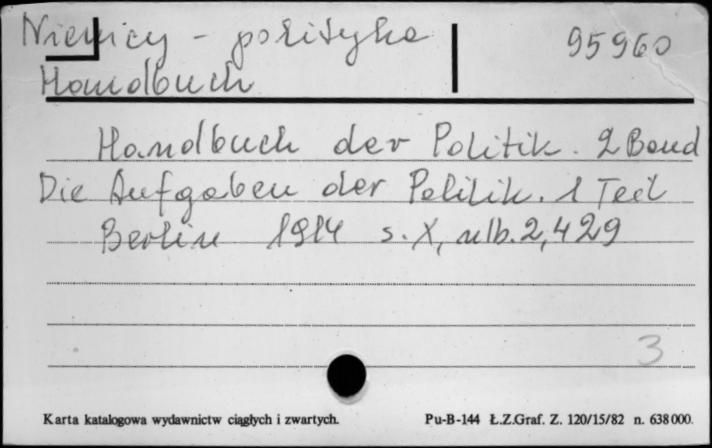 Niemicy - polityka 95960
Handbuch
Handbuch der Politik. 2 Band
Die Aufgaben der Politik. 1 Teil
Berlin 1914 s. X, nlb. 2, 429
3
Karta katalogowa wydawnictw ciągłych i zwartych. Pu-B-144 Ł.Z.Graf. Z. 120/15/82 n. 638000.